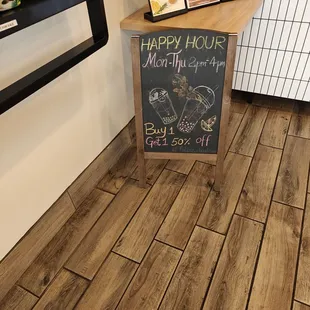 HAPPY HOUR
Mon-Thu 2pm-4pm
Buy 1
Get 1 50% off